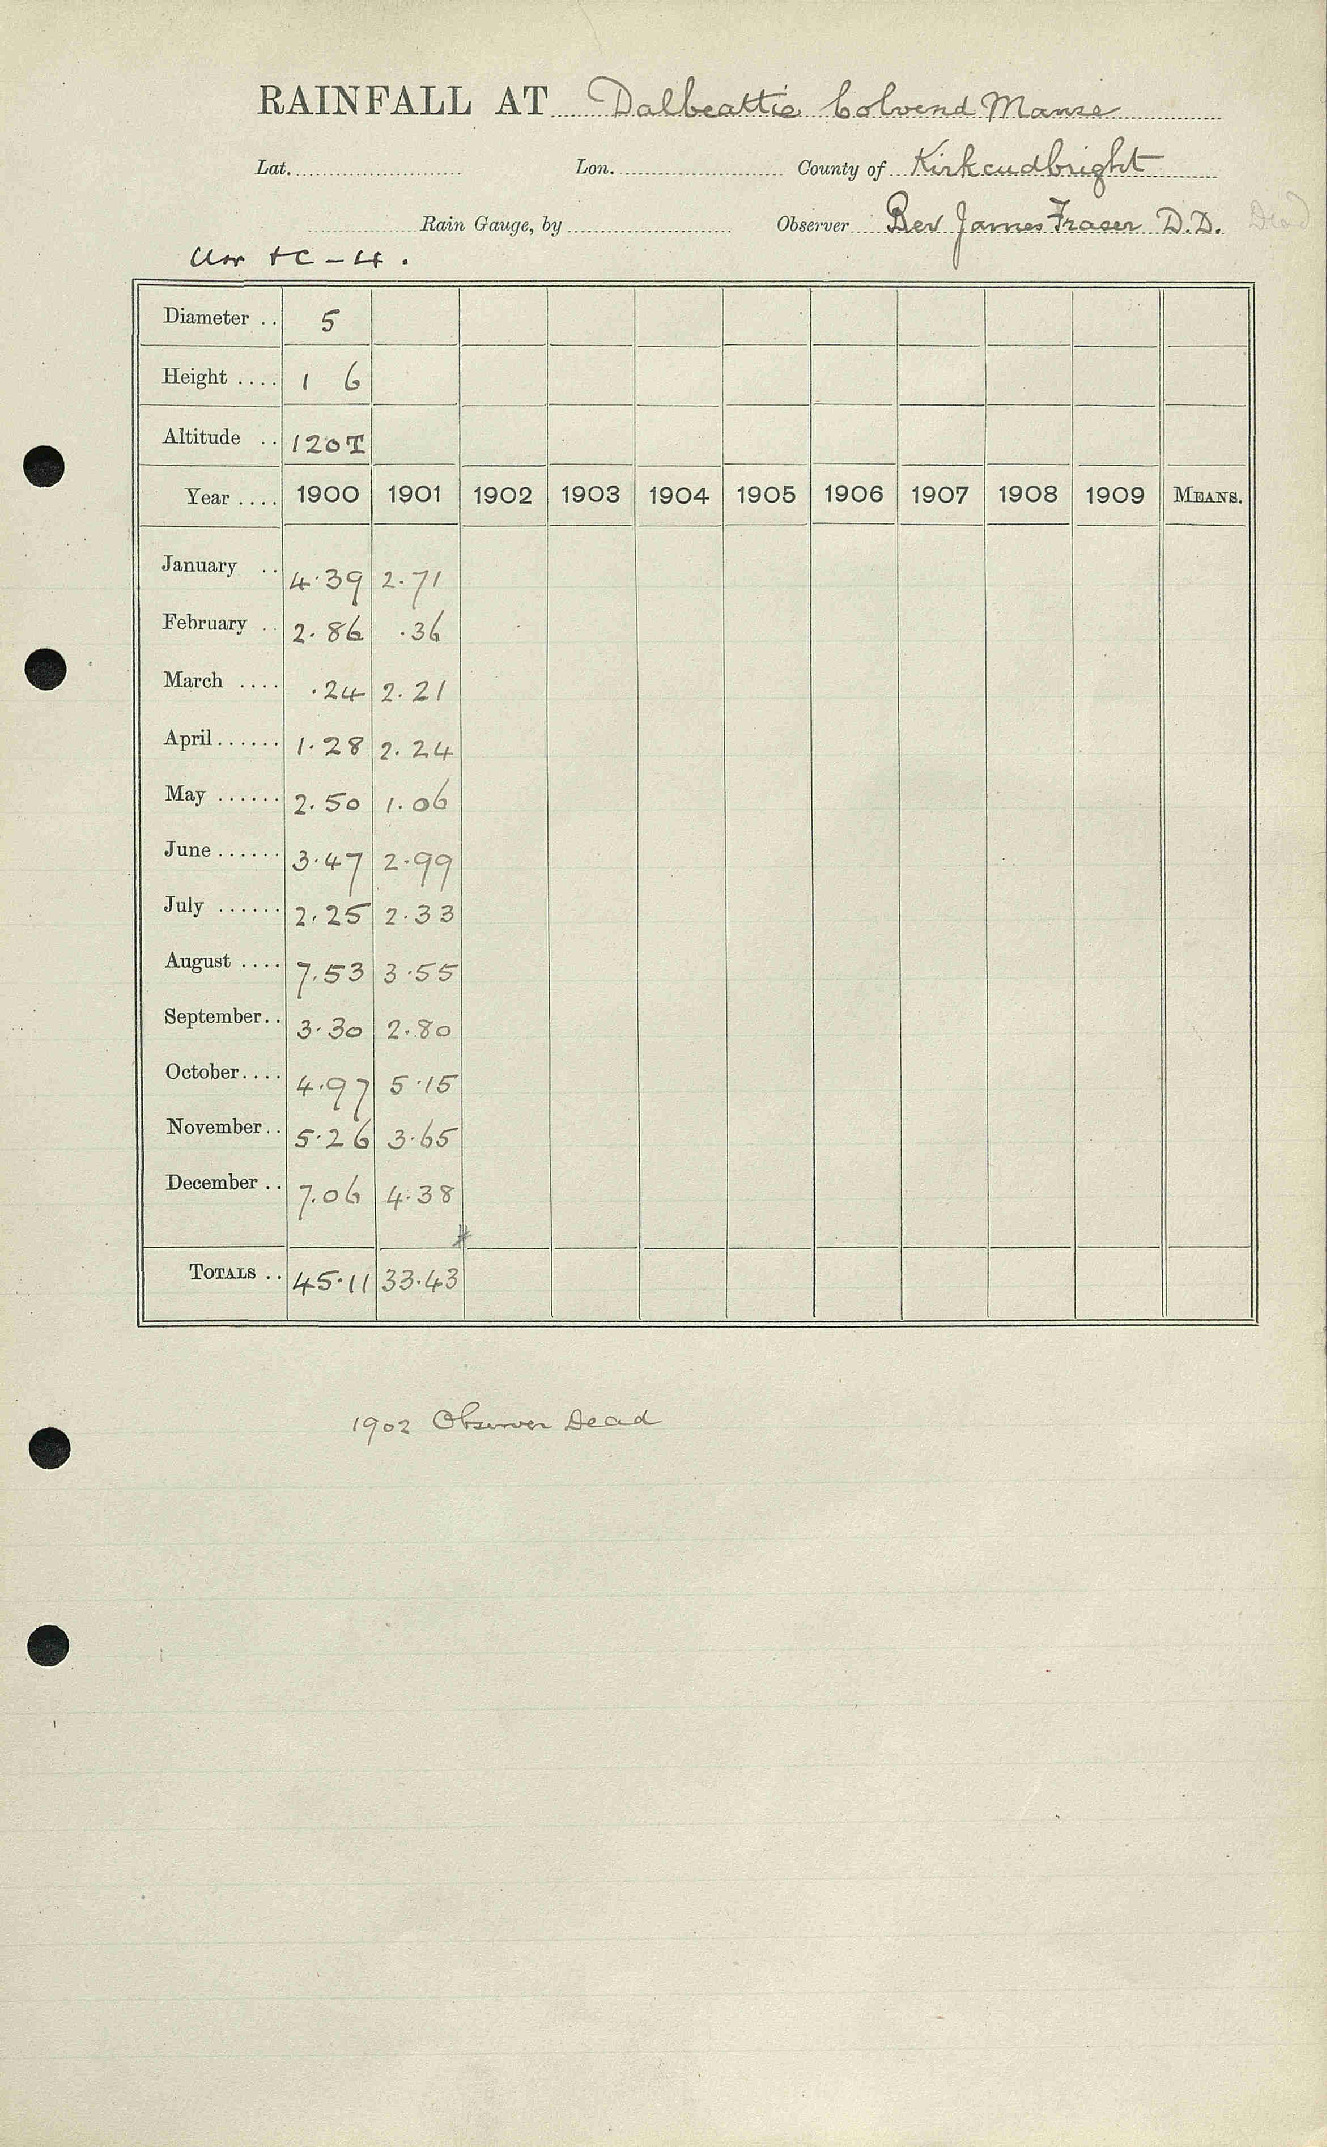 RAINFALL AT Dalbeattie Colvend Manse
Lat. Lon. County of Kirkcudbright
Rain Gauge, by Observer Rev James Fraser D.D. Dead
Diameter .. 5
Height .... 1 6
Altitude .. 120T
Year .... 1900 1901 1902 1903 1904 1905 1906 1907 1908 1909 MEANS.
January .. 4.39 2.71
February .. 2.86 .36
March .... .24 2.21
April...... 1.28 2.24
May ...... 2.50 1.06
June ...... 3.47 2.99
July ...... 2.25 2.33
August .... 7.53 3.55
September.. 3.30 2.80
October.... 4.97 5.15
November.. 5.26 3.65
December .. 7.06 4.38
TOTALS .. 45.11 33.43
1902 Observer Dead